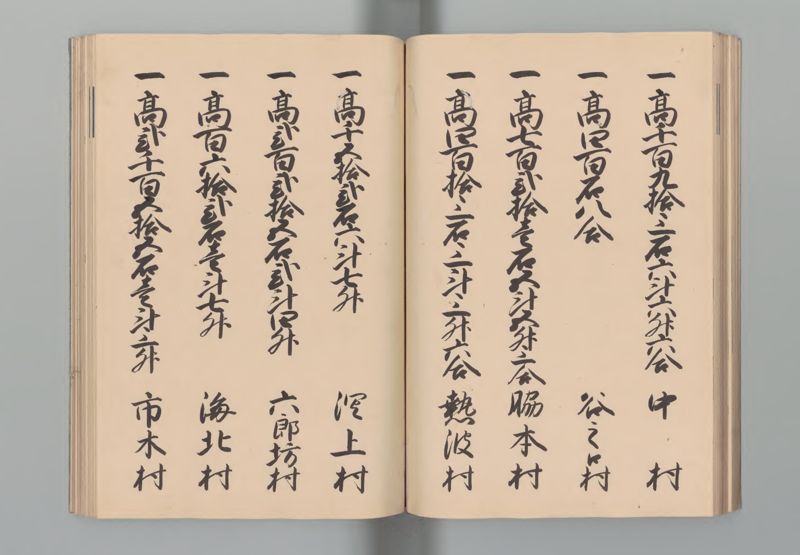 一 髙千百九拾三石六斗六升六合 中村
一 髙四百石八合 谷之口村
一 髙七百弐拾壱石五斗五升三合 脇本村
一 髙四百拾三石三斗三升六合 熱波村
一 髙千五拾弐石六斗七升 上村
一 髙弐百弐拾五石弐斗四升 六郎坊村
一 髙百六拾弐石壱斗七升 海北村
一 髙弐千百五拾五石壱斗三升 市木村